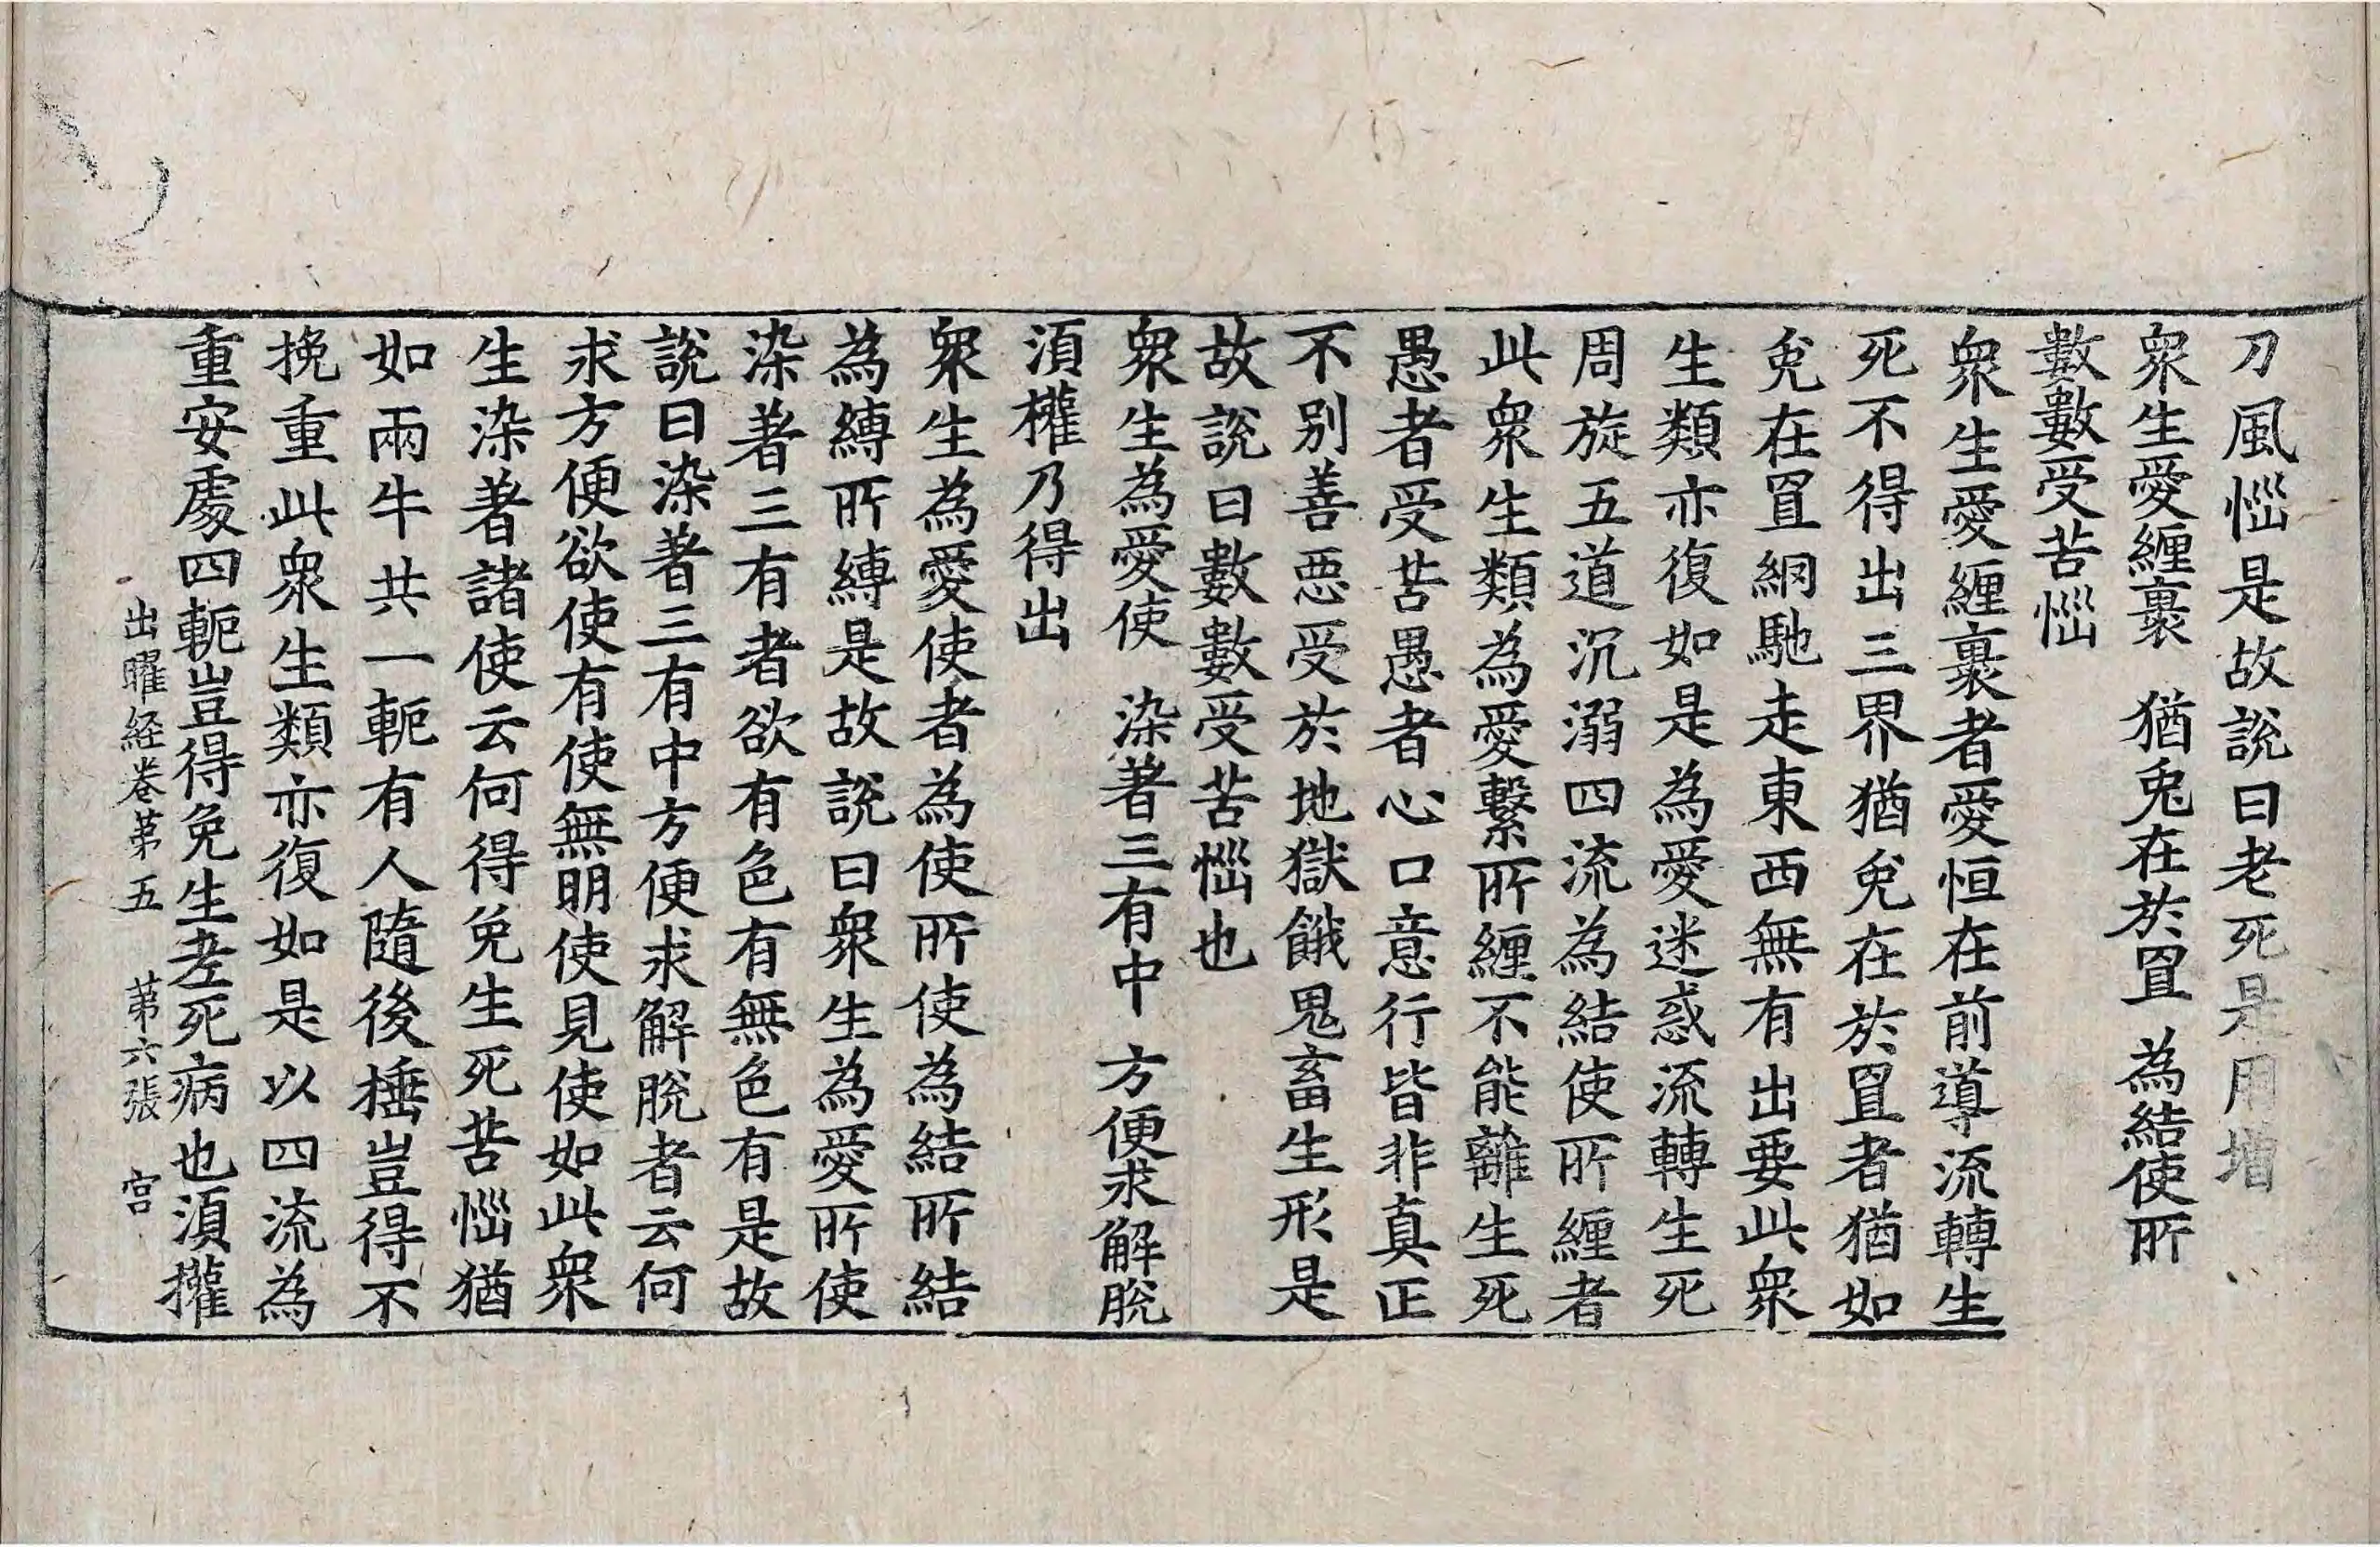 刀風惱是故說曰老死是用增
衆生愛纏裹　猶兎在於罝　為結使所
數數受苦惱
衆生愛纏裹者愛恒在前導流轉生
死不得出三界猶兎在於罝者猶如
兎在罝網馳走東西無有出要此衆
生類亦復如是為愛迷惑流轉生死
周旋五道沉溺四流為結使所纏者
此衆生類為愛繫所纏不能離生死
愚者受苦愚者心口意行皆非真正
不別善惡受於地獄餓鬼畜生形是
故說曰數數受苦惱也
衆生為愛使　染著三有中　方便求解脫
湏權乃得出
衆生為愛使者為使所使為結所結
為縛所縛是故說曰衆生為愛所使
染著三有者欲有色有無色有是故
說曰染著三有中方便求解脫者云何
求方便欲使有使無明使見使如此衆
生染著諸使云何得免生死苦惱猶
如兩牛共一軛有人隨後捶豈得不
挽重此衆生類亦復如是以四流為
重安處四軛豈得免生老死病也湏權
出曜経卷第五　第六張　宫